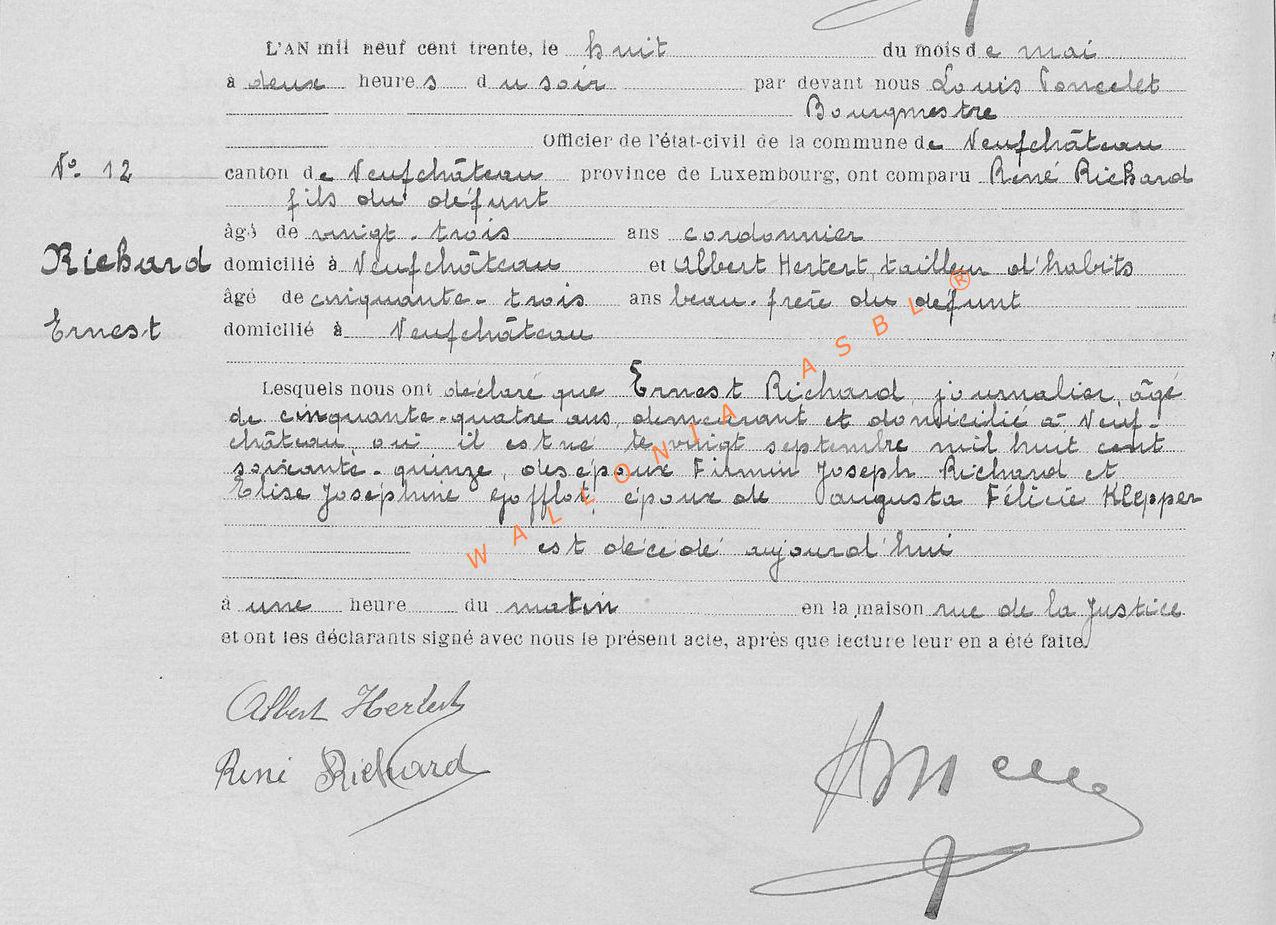 L'AN mil neuf cent trente, le huit du mois de mai
à deux heures du soir par devant nous Louis Poncelet
Bourgmestre
Officier de l'état-civil de la commune de Neufchâteau
N° 12
canton de Neufchâteau province de Luxembourg, ont comparu René Richard
fils du défunt
âgé de vingt-trois ans cordonnier
Richard
domicilié à Neufchâteau et Albert Hertert, tailleur d'habits
âgé de cinquante-trois ans beau-frère du défunt
Ernest
domicilié à Neufchâteau
Lesquels nous ont déclaré que Ernest Richard, journalier, âgé
de cinquante-quatre ans, demeurant et domicilié à Neuf-
château où il est né le vingt septembre mil huit cent
soixante-quinze, des époux Firmin Joseph Richard et
Elise Joséphine Gofflot, époux de Augusta Félicie Klepper
est décédé aujourd'hui
à une heure du matin en la maison rue de la Justice
et ont les déclarants signé avec nous le présent acte, après que lecture leur en a été faite.
Albert Hertert
René Richard
WALLONIA ASBL ®